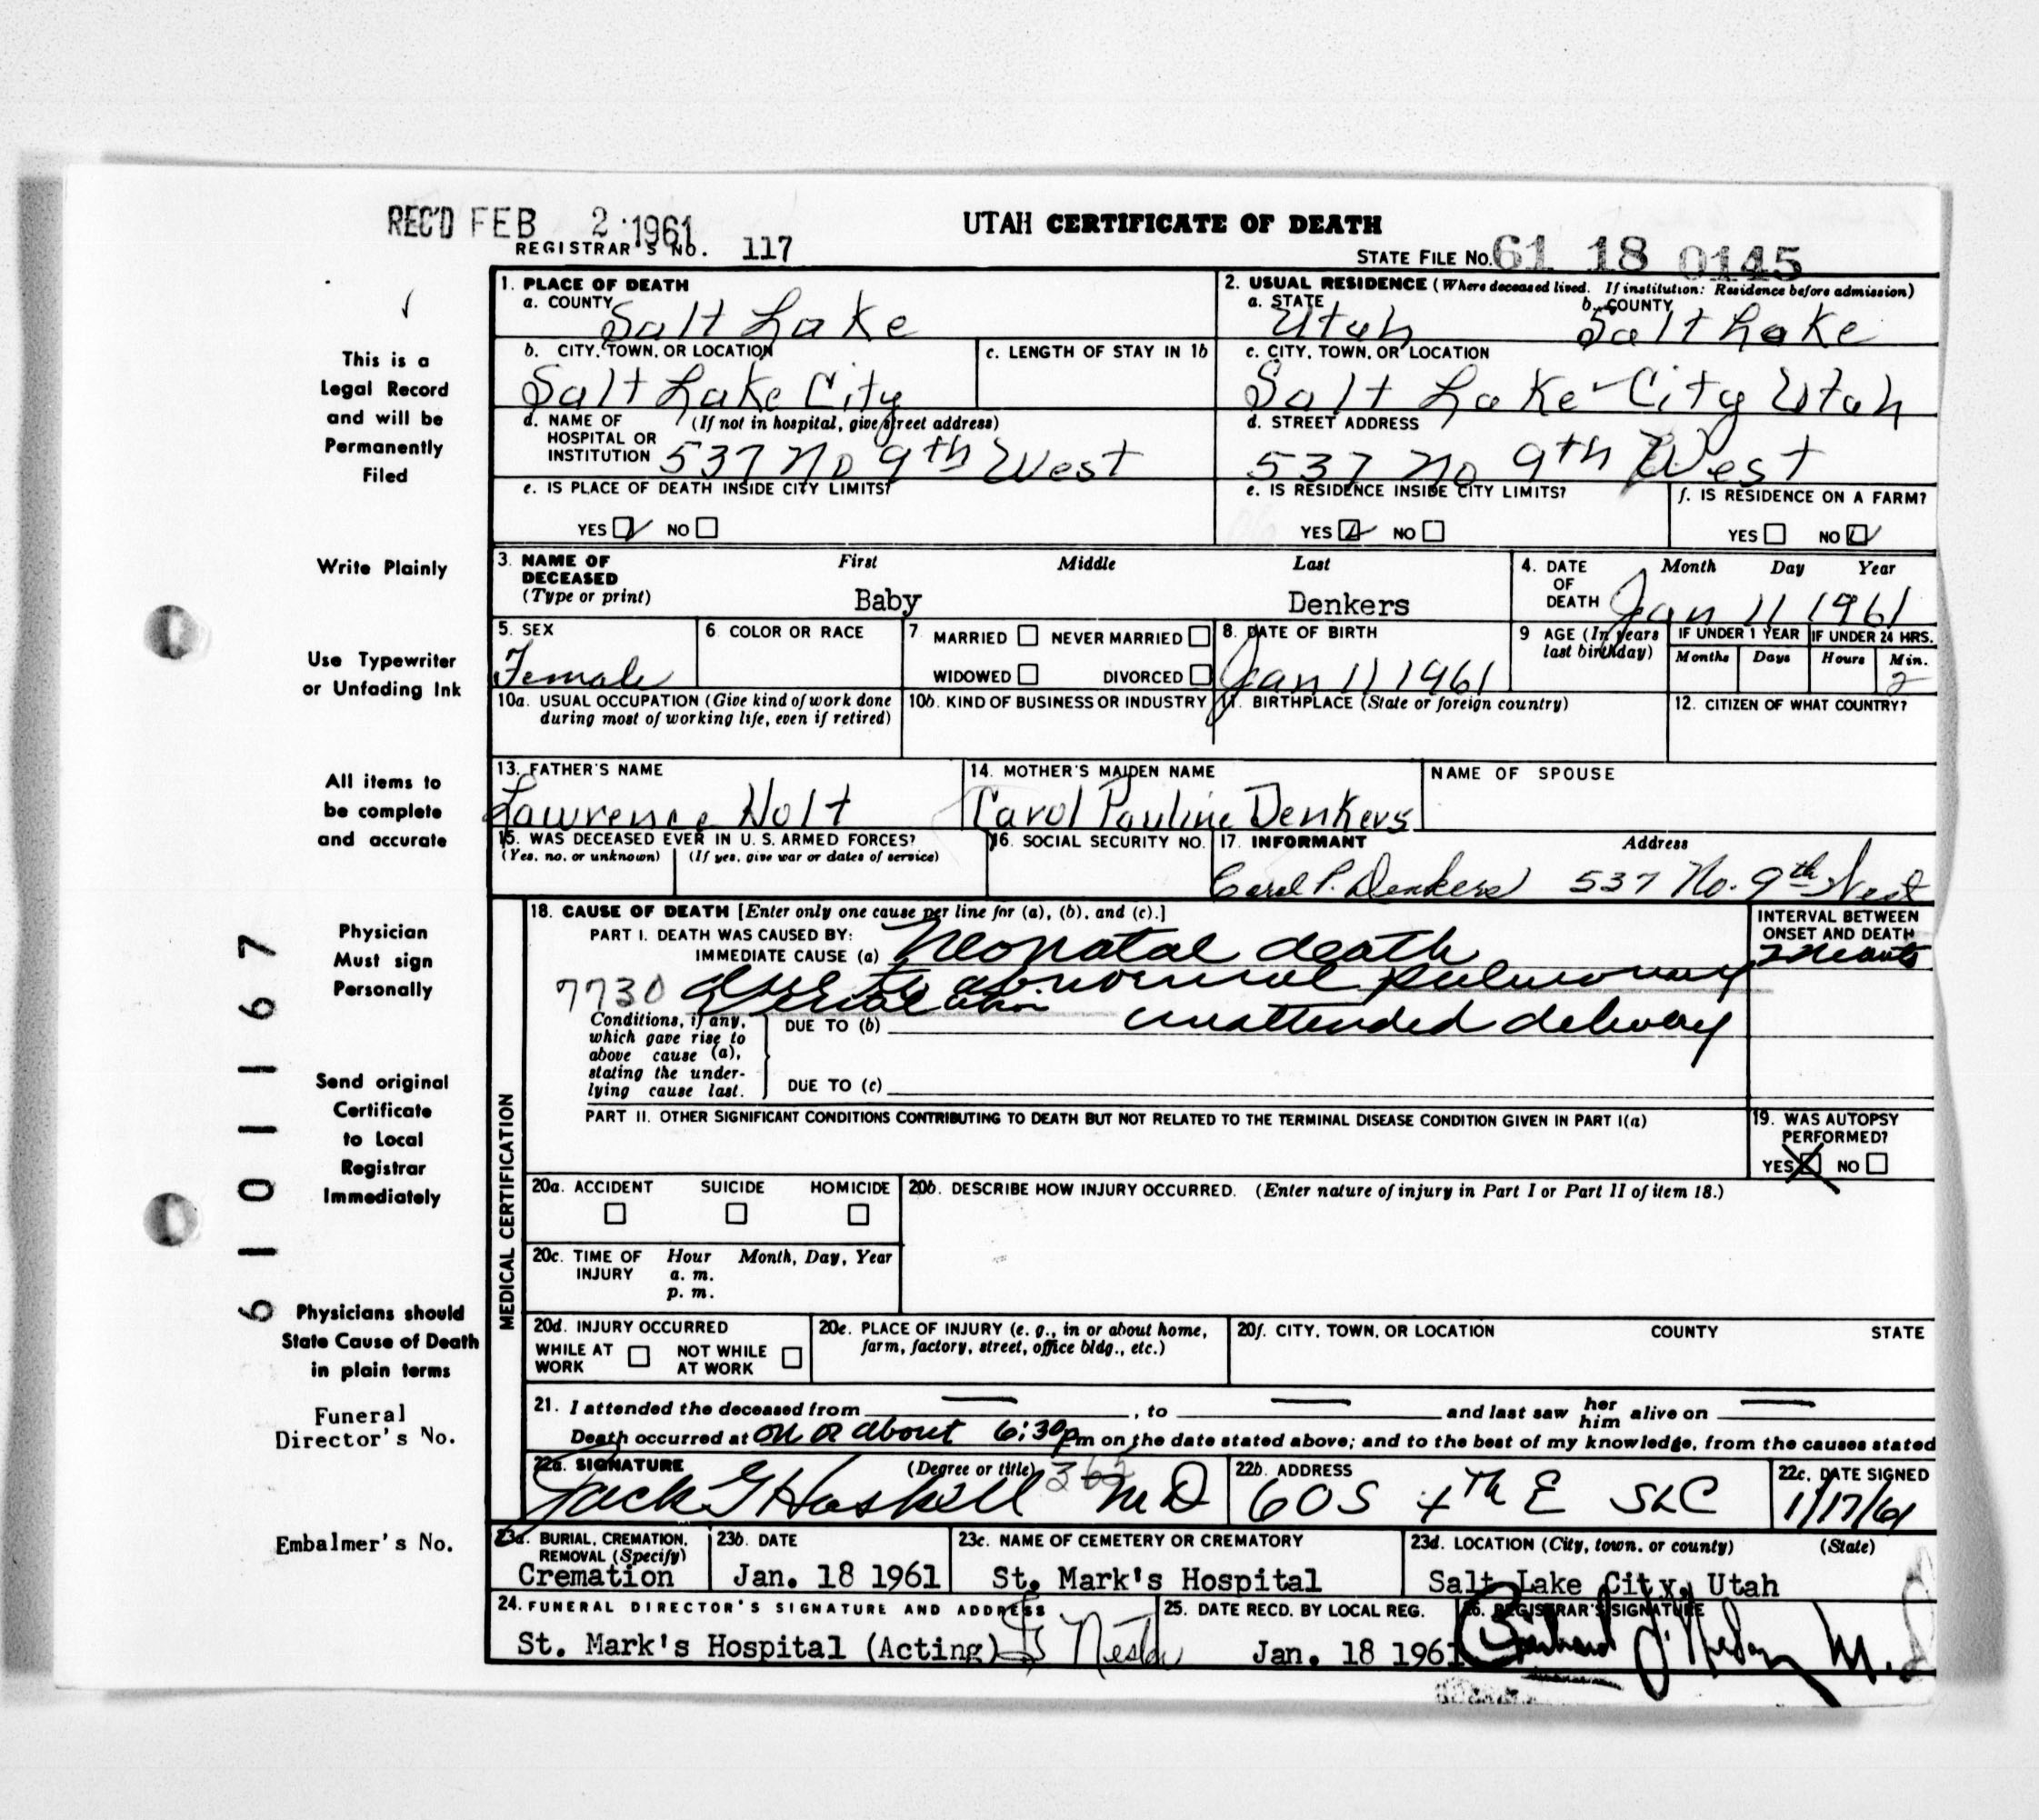 REC'D FEB 2 1961
UTAH CERTIFICATE OF DEATH
REGISTRAR'S NO. 117
STATE FILE NO. 61 18 0145
1. PLACE OF DEATH
a. COUNTY Salt Lake
2. USUAL RESIDENCE (Where deceased lived. If institution: Residence before admission)
a. STATE Utah b. COUNTY Salt Lake
b. CITY, TOWN, OR LOCATION Salt Lake City
c. LENGTH OF STAY IN 1b
c. CITY, TOWN, OR LOCATION Salt Lake City Utah
d. NAME OF HOSPITAL OR INSTITUTION (If not in hospital, give street address) 537 No 9th West
d. STREET ADDRESS 537 No 9th West
e. IS PLACE OF DEATH INSIDE CITY LIMITS?
YES NO
e. IS RESIDENCE INSIDE CITY LIMITS?
YES NO
f. IS RESIDENCE ON A FARM?
YES NO
3. NAME OF DECEASED (Type or print) First Middle Last
Baby Denkers
4. DATE OF DEATH Month Day Year
Jan 11 1961
5. SEX Female
6. COLOR OR RACE
7. MARRIED NEVER MARRIED
WIDOWED DIVORCED
8. DATE OF BIRTH Jan 11 1961
9 AGE (In years last birthday)
IF UNDER 1 YEAR Months Days
IF UNDER 24 HRS. Hours Min. 2
10a. USUAL OCCUPATION (Give kind of work done during most of working life, even if retired)
10b. KIND OF BUSINESS OR INDUSTRY
11. BIRTHPLACE (State or foreign country)
12. CITIZEN OF WHAT COUNTRY?
13. FATHER'S NAME Lawrence Holt
14. MOTHER'S MAIDEN NAME Carol Pauline Denkers
NAME OF SPOUSE
15. WAS DECEASED EVER IN U. S. ARMED FORCES?
(Yes, no, or unknown) (If yes, give war or dates of service)
16. SOCIAL SECURITY NO.
17. INFORMANT Address
Carol P. Denkers 537 No. 9th West
MEDICAL CERTIFICATION
18. CAUSE OF DEATH [Enter only one cause per line for (a), (b), and (c).]
PART I. DEATH WAS CAUSED BY:
IMMEDIATE CAUSE (a) Neonatal death
7730 due to abnormal pulmonary
Conditions, if any, which gave rise to above cause (a), stating the underlying cause last.
DUE TO (b) unattended delivery
DUE TO (c)
INTERVAL BETWEEN ONSET AND DEATH
PART II. OTHER SIGNIFICANT CONDITIONS CONTRIBUTING TO DEATH BUT NOT RELATED TO THE TERMINAL DISEASE CONDITION GIVEN IN PART I(a)
19. WAS AUTOPSY PERFORMED?
YES NO
20a. ACCIDENT SUICIDE HOMICIDE
20b. DESCRIBE HOW INJURY OCCURRED. (Enter nature of injury in Part I or Part II of item 18.)
20c. TIME OF INJURY Hour Month, Day, Year
a. m.
p. m.
20d. INJURY OCCURRED
WHILE AT WORK NOT WHILE AT WORK
20e. PLACE OF INJURY (e. g., in or about home, farm, factory, street, office bldg., etc.)
20f. CITY, TOWN, OR LOCATION COUNTY STATE
21. I attended the deceased from , to and last saw her him alive on
Death occurred at on or about 6:30pm on the date stated above; and to the best of my knowledge, from the causes stated
22a. SIGNATURE (Degree or title) Jack G Haskell MD
22b. ADDRESS 60 S 4th E SLC
22c. DATE SIGNED 1/17/61
23a. BURIAL, CREMATION, REMOVAL (Specify) Cremation
23b. DATE Jan. 18 1961
23c. NAME OF CEMETERY OR CREMATORY St. Mark's Hospital
23d. LOCATION (City, town, or county) (State) Salt Lake City, Utah
24. FUNERAL DIRECTOR'S SIGNATURE AND ADDRESS
St. Mark's Hospital (Acting)
25. DATE RECD. BY LOCAL REG.
Jan. 18 1961
26. REGISTRAR'S SIGNATURE
This is a
Legal Record
and will be
Permanently
Filed
Write Plainly
Use Typewriter
or Unfading Ink
All items to
be complete
and accurate
Physician
Must sign
Personally
Send original
Certificate
to Local
Registrar
Immediately
Physicians should
State Cause of Death
in plain terms
Funeral
Director's No.
Embalmer's No.
6101167